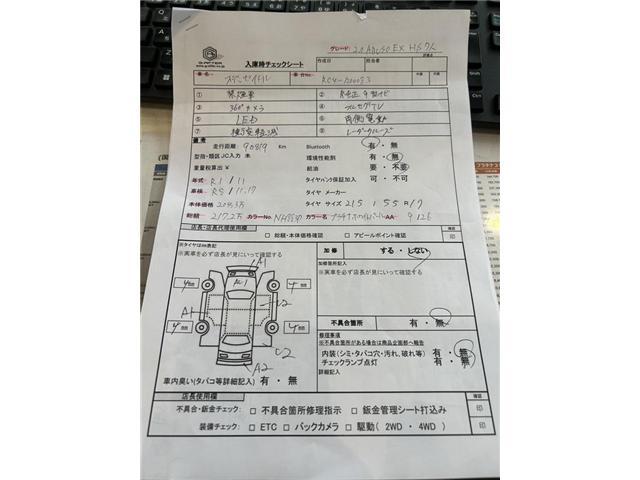 G-AFTER
入庫時チェックシート
グレード: 2.0 ABSO EX HS 7人
作成日 担当者
車名 オデッセイ 車台No. RC4-
① 禁煙車 ② 純正9型ナビ
③ 360°カメラ ④ フルセグTV
⑤ LED ⑥ 両側電動
⑦ ⑧ レーダークルーズ
備考
走行距離: 90819 Km Bluetooth 有・無
型指・類区JC入力 未 環境性能割 有・無
重量税算出 ¥ 給油 要・不要
年式 R1 / 11 タイヤパンク保証加入 可・不可
車検 R8 / 11.17 タイヤ メーカー
本体価格 タイヤ サイズ 215 / 55 R 17
総額 217.2万 カラーNo. NH883P カラー名 AA 9126
店長・店長代理使用欄 確認
□ 総額・本体価格確認 □ アピールポイント確認 印
※タイヤはmm表記
※実車を必ず店長が見にいって確認する
加修 する・しない
加修箇所記入
※実車を必ず店長が見にいって確認する
A1
AU1
4mm 4mm
A1 U2
4mm 4mm
U2
A2
不具合箇所 有・無
修理事項
※不具合箇所がある場合は商品企画部へ報告
内装(シミ・タバコ穴・汚れ、破れ等) 有・無
チェックランプ点灯 有・無
詳細記入
車内臭い(タバコ等詳細記入) 有・無
店長使用欄 確認
不具合・鈑金チェック: □ 不具合箇所修理指示 □ 鈑金管理シート打込み 印
装備チェック: □ ETC □ バックカメラ □ 駆動( 2WD ・ 4WD ) 印